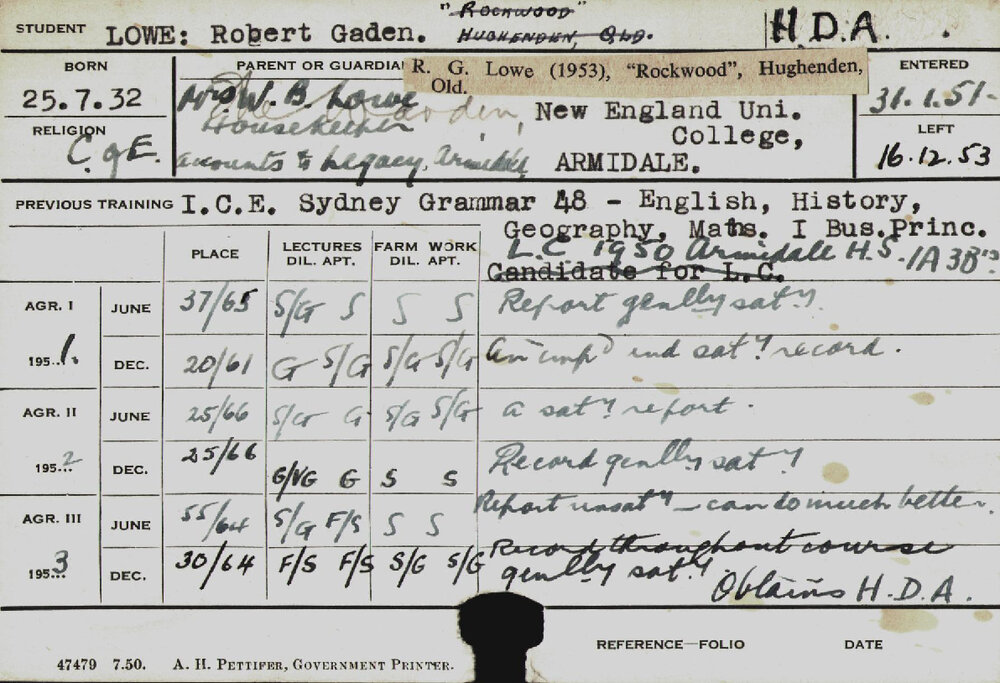 "ROCKWOOD"
STUDENT LOWE: Robert Gaden. HUGHENDEN, QLD. H.D.A.
BORN PARENT OR GUARDIAN R. G. Lowe (1953), "Rockwood", Hughenden, ENTERED
Qld.
25.7.32 Mrs W. B. Lowe New England Uni. 31.1.51
Housekeeper College, LEFT
RELIGION C of E. accounts to Legacy, Armidale ARMIDALE. 16.12.53
PREVIOUS TRAINING I.C.E. Sydney Grammar 48 - English, History,
Geography, Maths. I Bus.Princ.
L.C. 1950 Armidale H.S. 1A 3B's
Candidate for L.C.
PLACE LECTURES FARM WORK
DIL. APT. DIL. APT.
AGR. I JUNE 37/65 S/G S S S Report genlly sat'y.
195 1. DEC. 20/61 G S/G S/G S/G An imp'd and sat'y record.
AGR. II JUNE 25/66 S/G G S/G S/G A sat'y report.
195...2 DEC. 25/66 G/VG G S S Record genlly sat'y
AGR. III JUNE 55/64 S/G F/S S S Report unsat'y - can do much better.
195...3 DEC. 30/64 F/S F/S S/G S/G Record throughout course
genlly sat'y. Obtains H.D.A.
REFERENCE—FOLIO DATE
47479 7.50. A. H. PETTIFER, GOVERNMENT PRINTER.